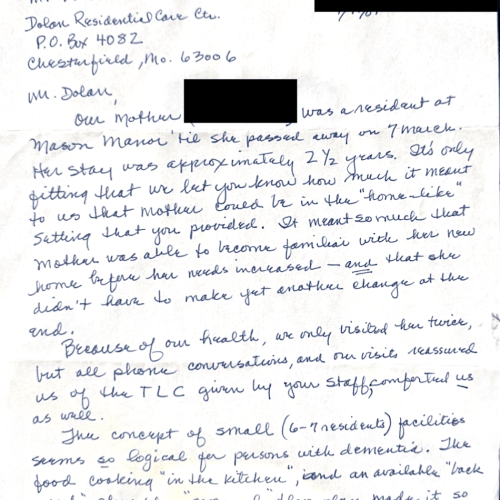 Dolan Residential Care Ctr.
P.O. Box 4082
Chesterfield, Mo. 63006
Mr. Dolan,
Our Mother ( was a resident at
Mason Manor 'til she passed away on 7 March.
Her stay was approximately 2 1/2 years. It's only
fitting that we let you know how much it meant
to us that Mother could be in the "home-like"
setting that you provided. It meant so much that
Mother was able to become familiar with her new
home before her needs increased — and that she
didn't have to make yet another change at the
end.
Because of our health, we only visited her twice,
but all phone conversations, and our visits reassured
us of the TLC given by your staff, comforted us
as well.
The concept of small (6-7 residents) facilities
seems so logical for persons with dementia. The
food cooking "in the kitchen", and an available "back
made it so